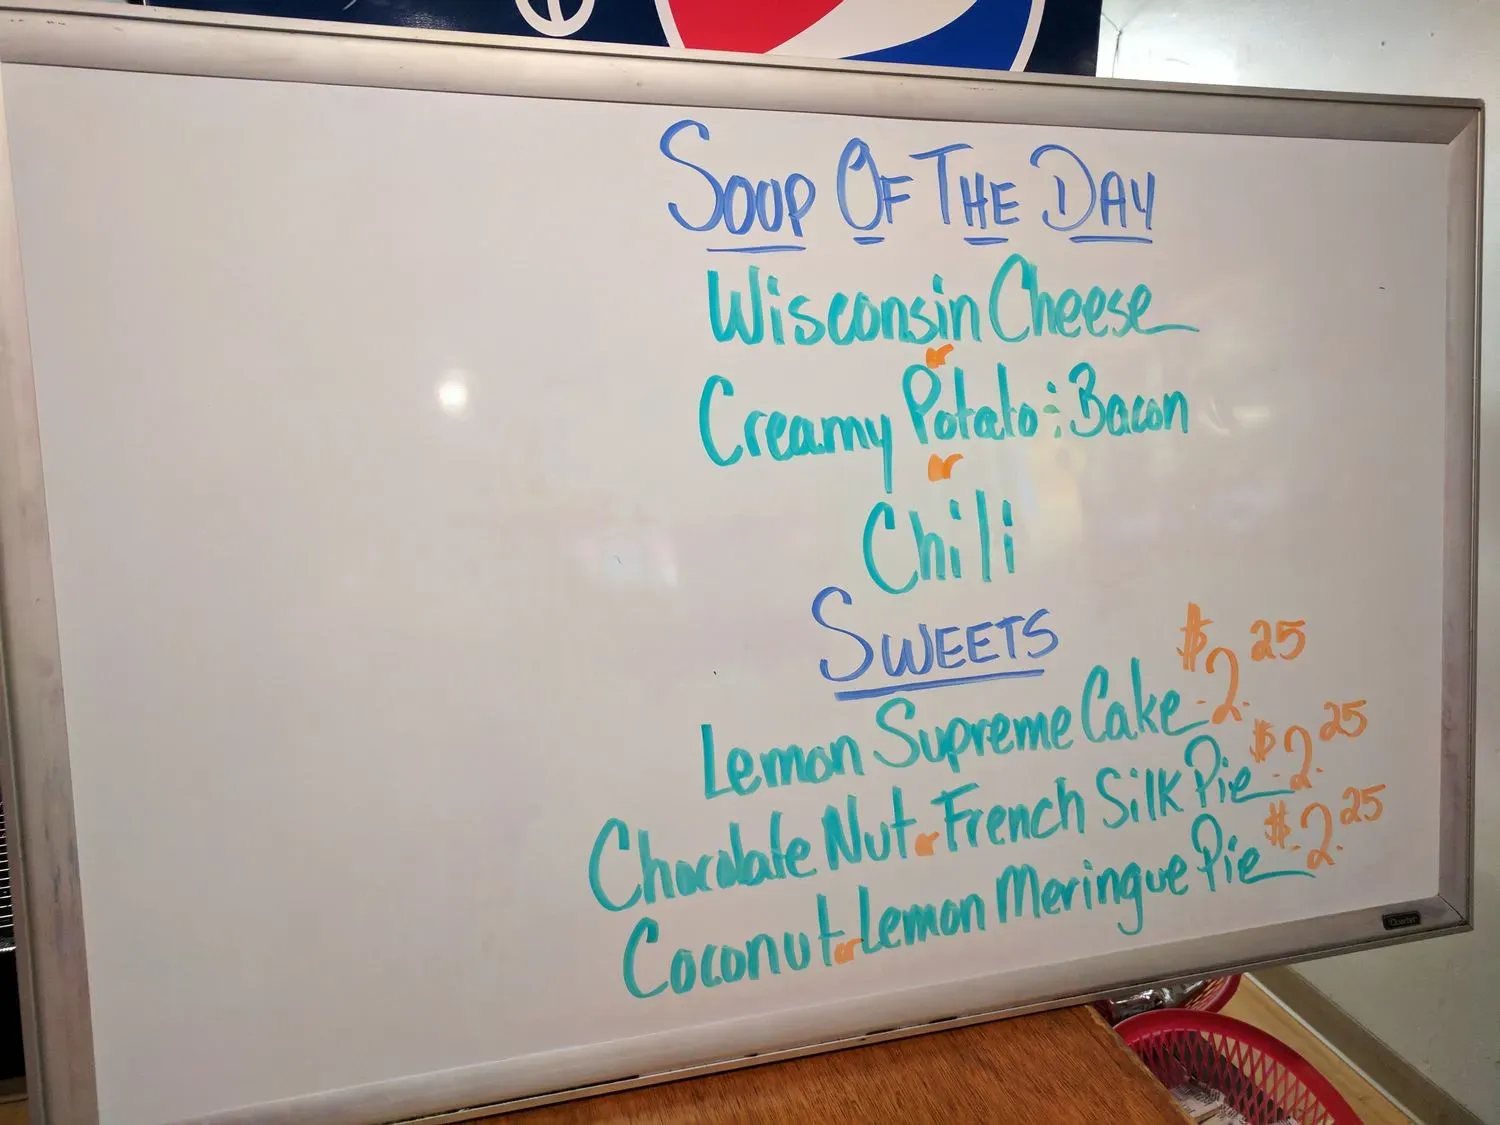 SOUP OF THE DAY
Wisconsin Cheese
or
Creamy Potato & Bacon
or
Chili
SWEETS
Lemon Supreme Cake $2.25
Chocolate Nut or French Silk Pie $2.25
Coconut or Lemon Meringue Pie $2.25
Quartet